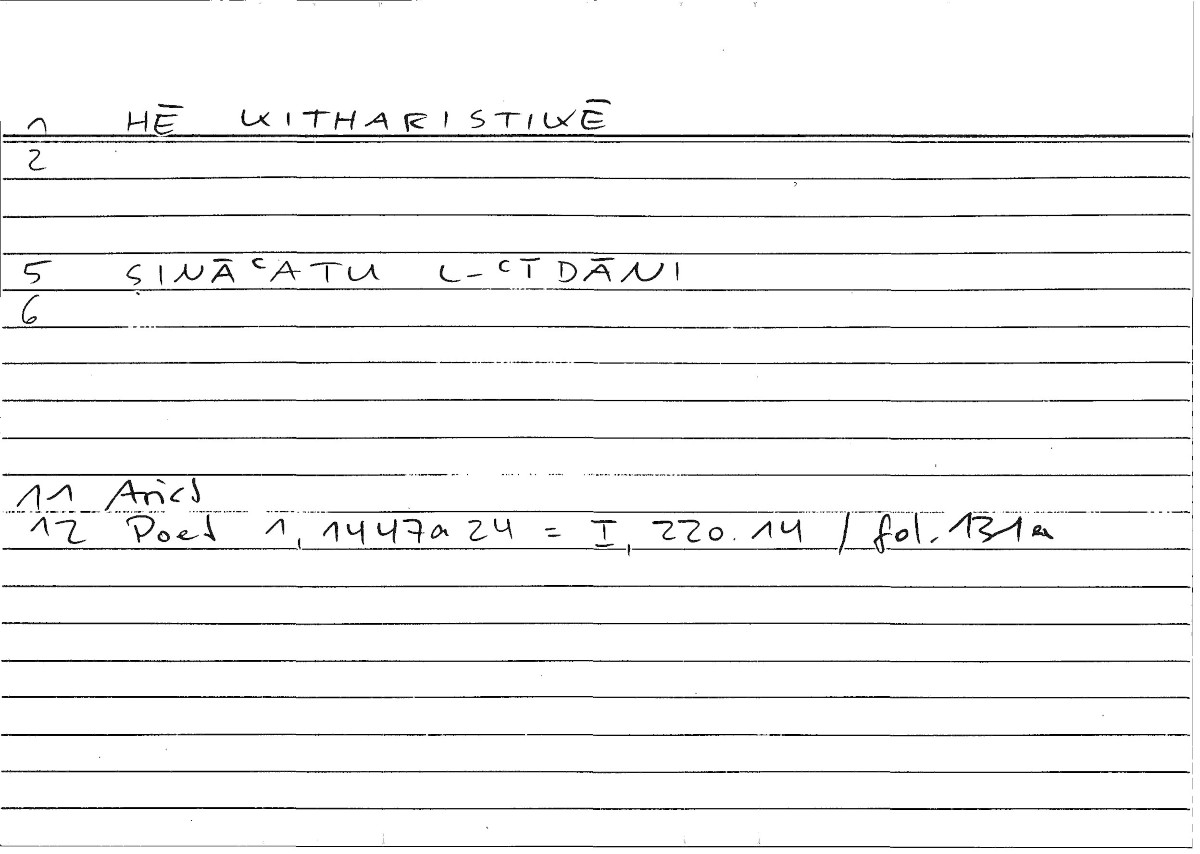 1 HĒ KITHARISTIKĒ
2
5 ṢINĀʿATU L-ʿĪDĀNI
6
11 Arist
12 Poet 1, 1447a 24 = I, 220.14 / fol. 131a